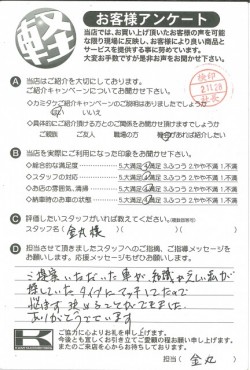 軽
お客様アンケート
当店では、お買い上げ頂いたお客様の声を可能
な限り現場に反映し、お客様により良い商品と
サービスを提供する事に努めています。
大変お手数ですが是非お声をお聞かせ下さい。
A 当店はご紹介を大切にしております。
ご紹介キャンペーンについてお聞かせ下さい。
検印
2.11.28
◇カミタケご紹介キャンペーンのご説明はありましたでしょうか
はい いいえ
◇具体的にご紹介頂ける方とのご関係をお聞かせ頂けますでしょうか
ご親族 ご友人 職場の方 機会があれば紹介したい
B 当店を実際にご利用になった印象をお聞かせ下さい。
◇総合的な満足度 5.大満足 4.満足 3.ふつう 2.やや不満 1.不満
◇スタッフの対応 5.大満足 4.満足 3.ふつう 2.やや不満 1.不満
◇お店の雰囲気、清掃 5.大満足 4.満足 3.ふつう 2.やや不満 1.不満
◇納車時のお車の状態 5.大満足 4.満足 3.ふつう 2.やや不満 1.不満
C 評価したいスタッフがいれば教えてください。
スタッフ名( 金丸様 )
D 担当させて頂きましたスタッフへのご指摘、ご指導メッセージを
お願いします。応援メッセージもぜひお願いします。
探していたタイプにマッチしてたので
悩まず決めることができました。
ありがとうございます
K
ご協力に心よりお礼を申し上げます。
今後とも宜しくお引き立てご愛顧の程お願い申し上げます。
またのご来店を心からお待ちしております。
担当( 金丸 )